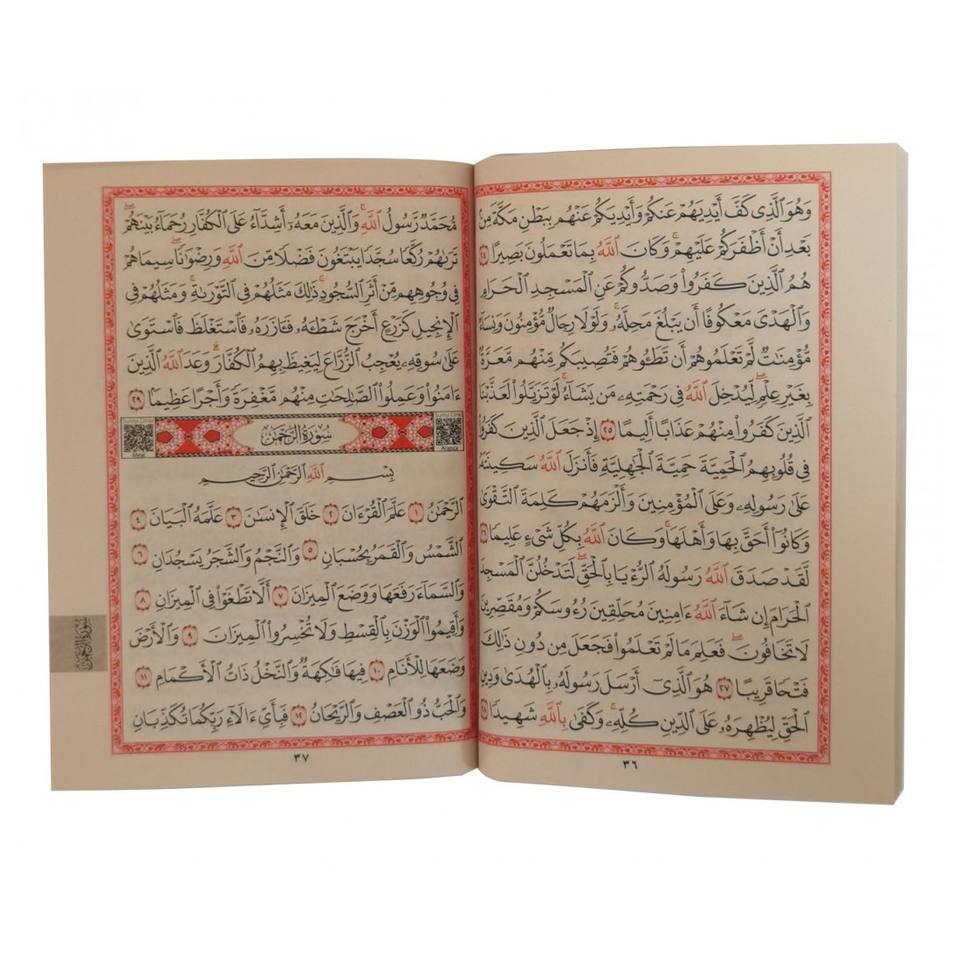 وَهُوَ الَّذِي كَفَّ أَيْدِيَهُمْ عَنكُمْ وَأَيْدِيَكُمْ عَنْهُم بِبَطْنِ مَكَّةَ مِنۢ
بَعْدِ أَنْ أَظْفَرَكُمْ عَلَيْهِمْ ۚ وَكَانَ اللَّهُ بِمَا تَعْمَلُونَ بَصِيرًا ٢٤
هُمُ الَّذِينَ كَفَرُوا۟ وَصَدُّوكُمْ عَنِ الْمَسْجِدِ الْحَرَامِ
وَالْهَدْىَ مَعْكُوفًا أَن يَبْلُغَ مَحِلَّهُۥ ۚ وَلَوْلَا رِجَالٌ مُّؤْمِنُونَ وَنِسَآءٌ
مُّؤْمِنَٰتٌ لَّمْ تَعْلَمُوهُمْ أَن تَطَـُٔوهُمْ فَتُصِيبَكُم مِّنْهُم مَّعَرَّةٌۢ
بِغَيْرِ عِلْمٍ ۖ لِّيُدْخِلَ اللَّهُ فِى رَحْمَتِهِۦ مَن يَشَآءُ ۚ لَوْ تَزَيَّلُوا۟ لَعَذَّبْنَا
الَّذِينَ كَفَرُوا۟ مِنْهُمْ عَذَابًا أَلِيمًا ٢٥ إِذْ جَعَلَ الَّذِينَ كَفَرُوا۟
فِى قُلُوبِهِمُ الْحَمِيَّةَ حَمِيَّةَ الْجَٰهِلِيَّةِ فَأَنزَلَ اللَّهُ سَكِينَتَهُۥ
عَلَىٰ رَسُولِهِۦ وَعَلَى الْمُؤْمِنِينَ وَأَلْزَمَهُمْ كَلِمَةَ التَّقْوَىٰ
وَكَانُوٓا۟ أَحَقَّ بِهَا وَأَهْلَهَا ۚ وَكَانَ اللَّهُ بِكُلِّ شَىْءٍ عَلِيمًا ٢٦
لَّقَدْ صَدَقَ اللَّهُ رَسُولَهُ الرُّءْيَا بِالْحَقِّ ۖ لَتَدْخُلُنَّ الْمَسْجِدَ
الْحَرَامَ إِن شَآءَ اللَّهُ ءَامِنِينَ مُحَلِّقِينَ رُءُوسَكُمْ وَمُقَصِّرِينَ
لَا تَخَافُونَ ۖ فَعَلِمَ مَا لَمْ تَعْلَمُوا۟ فَجَعَلَ مِن دُونِ ذَٰلِكَ
فَتْحًا قَرِيبًا ٢٧ هُوَ الَّذِىٓ أَرْسَلَ رَسُولَهُۥ بِالْهُدَىٰ وَدِينِ
الْحَقِّ لِيُظْهِرَهُۥ عَلَى الدِّينِ كُلِّهِۦ ۚ وَكَفَىٰ بِاللَّهِ شَهِيدًا ٢٨
٣٦
مُّحَمَّدٌ رَّسُولُ اللَّهِ ۚ وَالَّذِينَ مَعَهُۥٓ أَشِدَّآءُ عَلَى الْكُفَّارِ رُحَمَآءُ بَيْنَهُمْ ۖ
تَرَىٰهُمْ رُكَّعًا سُجَّدًا يَبْتَغُونَ فَضْلًا مِّنَ اللَّهِ وَرِضْوَٰنًا ۖ سِيمَاهُمْ
فِى وُجُوهِهِم مِّنْ أَثَرِ السُّجُودِ ۚ ذَٰلِكَ مَثَلُهُمْ فِى التَّوْرَىٰةِ ۚ وَمَثَلُهُمْ فِى
الْإِنجِيلِ كَزَرْعٍ أَخْرَجَ شَطْـَٔهُۥ فَـَٔازَرَهُۥ فَاسْتَغْلَظَ فَاسْتَوَىٰ
عَلَىٰ سُوقِهِۦ يُعْجِبُ الزُّرَّاعَ لِيَغِيظَ بِهِمُ الْكُفَّارَ ۗ وَعَدَ اللَّهُ الَّذِينَ
ءَامَنُوا۟ وَعَمِلُوا۟ الصَّٰلِحَٰتِ مِنْهُم مَّغْفِرَةً وَأَجْرًا عَظِيمًۢا ٢٩
سُورَةُ الرَّحْمَٰن
Meal
بِسْمِ اللَّهِ الرَّحْمَٰنِ الرَّحِيمِ
الرَّحْمَٰنُ ١ عَلَّمَ الْقُرْءَانَ ٢ خَلَقَ الْإِنسَٰنَ ٣ عَلَّمَهُ الْبَيَانَ ٤
الشَّمْسُ وَالْقَمَرُ بِحُسْبَانٍ ٥ وَالنَّجْمُ وَالشَّجَرُ يَسْجُدَانِ ٦
وَالسَّمَآءَ رَفَعَهَا وَوَضَعَ الْمِيزَانَ ٧ أَلَّا تَطْغَوْا۟ فِى الْمِيزَانِ ٨
وَأَقِيمُوا۟ الْوَزْنَ بِالْقِسْطِ وَلَا تُخْسِرُوا۟ الْمِيزَانَ ٩ وَالْأَرْضَ
وَضَعَهَا لِلْأَنَامِ ١٠ فِيهَا فَٰكِهَةٌ وَالنَّخْلُ ذَاتُ الْأَكْمَامِ ١١
وَالْحَبُّ ذُو الْعَصْفِ وَالرَّيْحَانُ ١٢ فَبِأَىِّ ءَالَآءِ رَبِّكُمَا تُكَذِّبَانِ
سُورَةُ الرَّحْمَٰن
٣٧